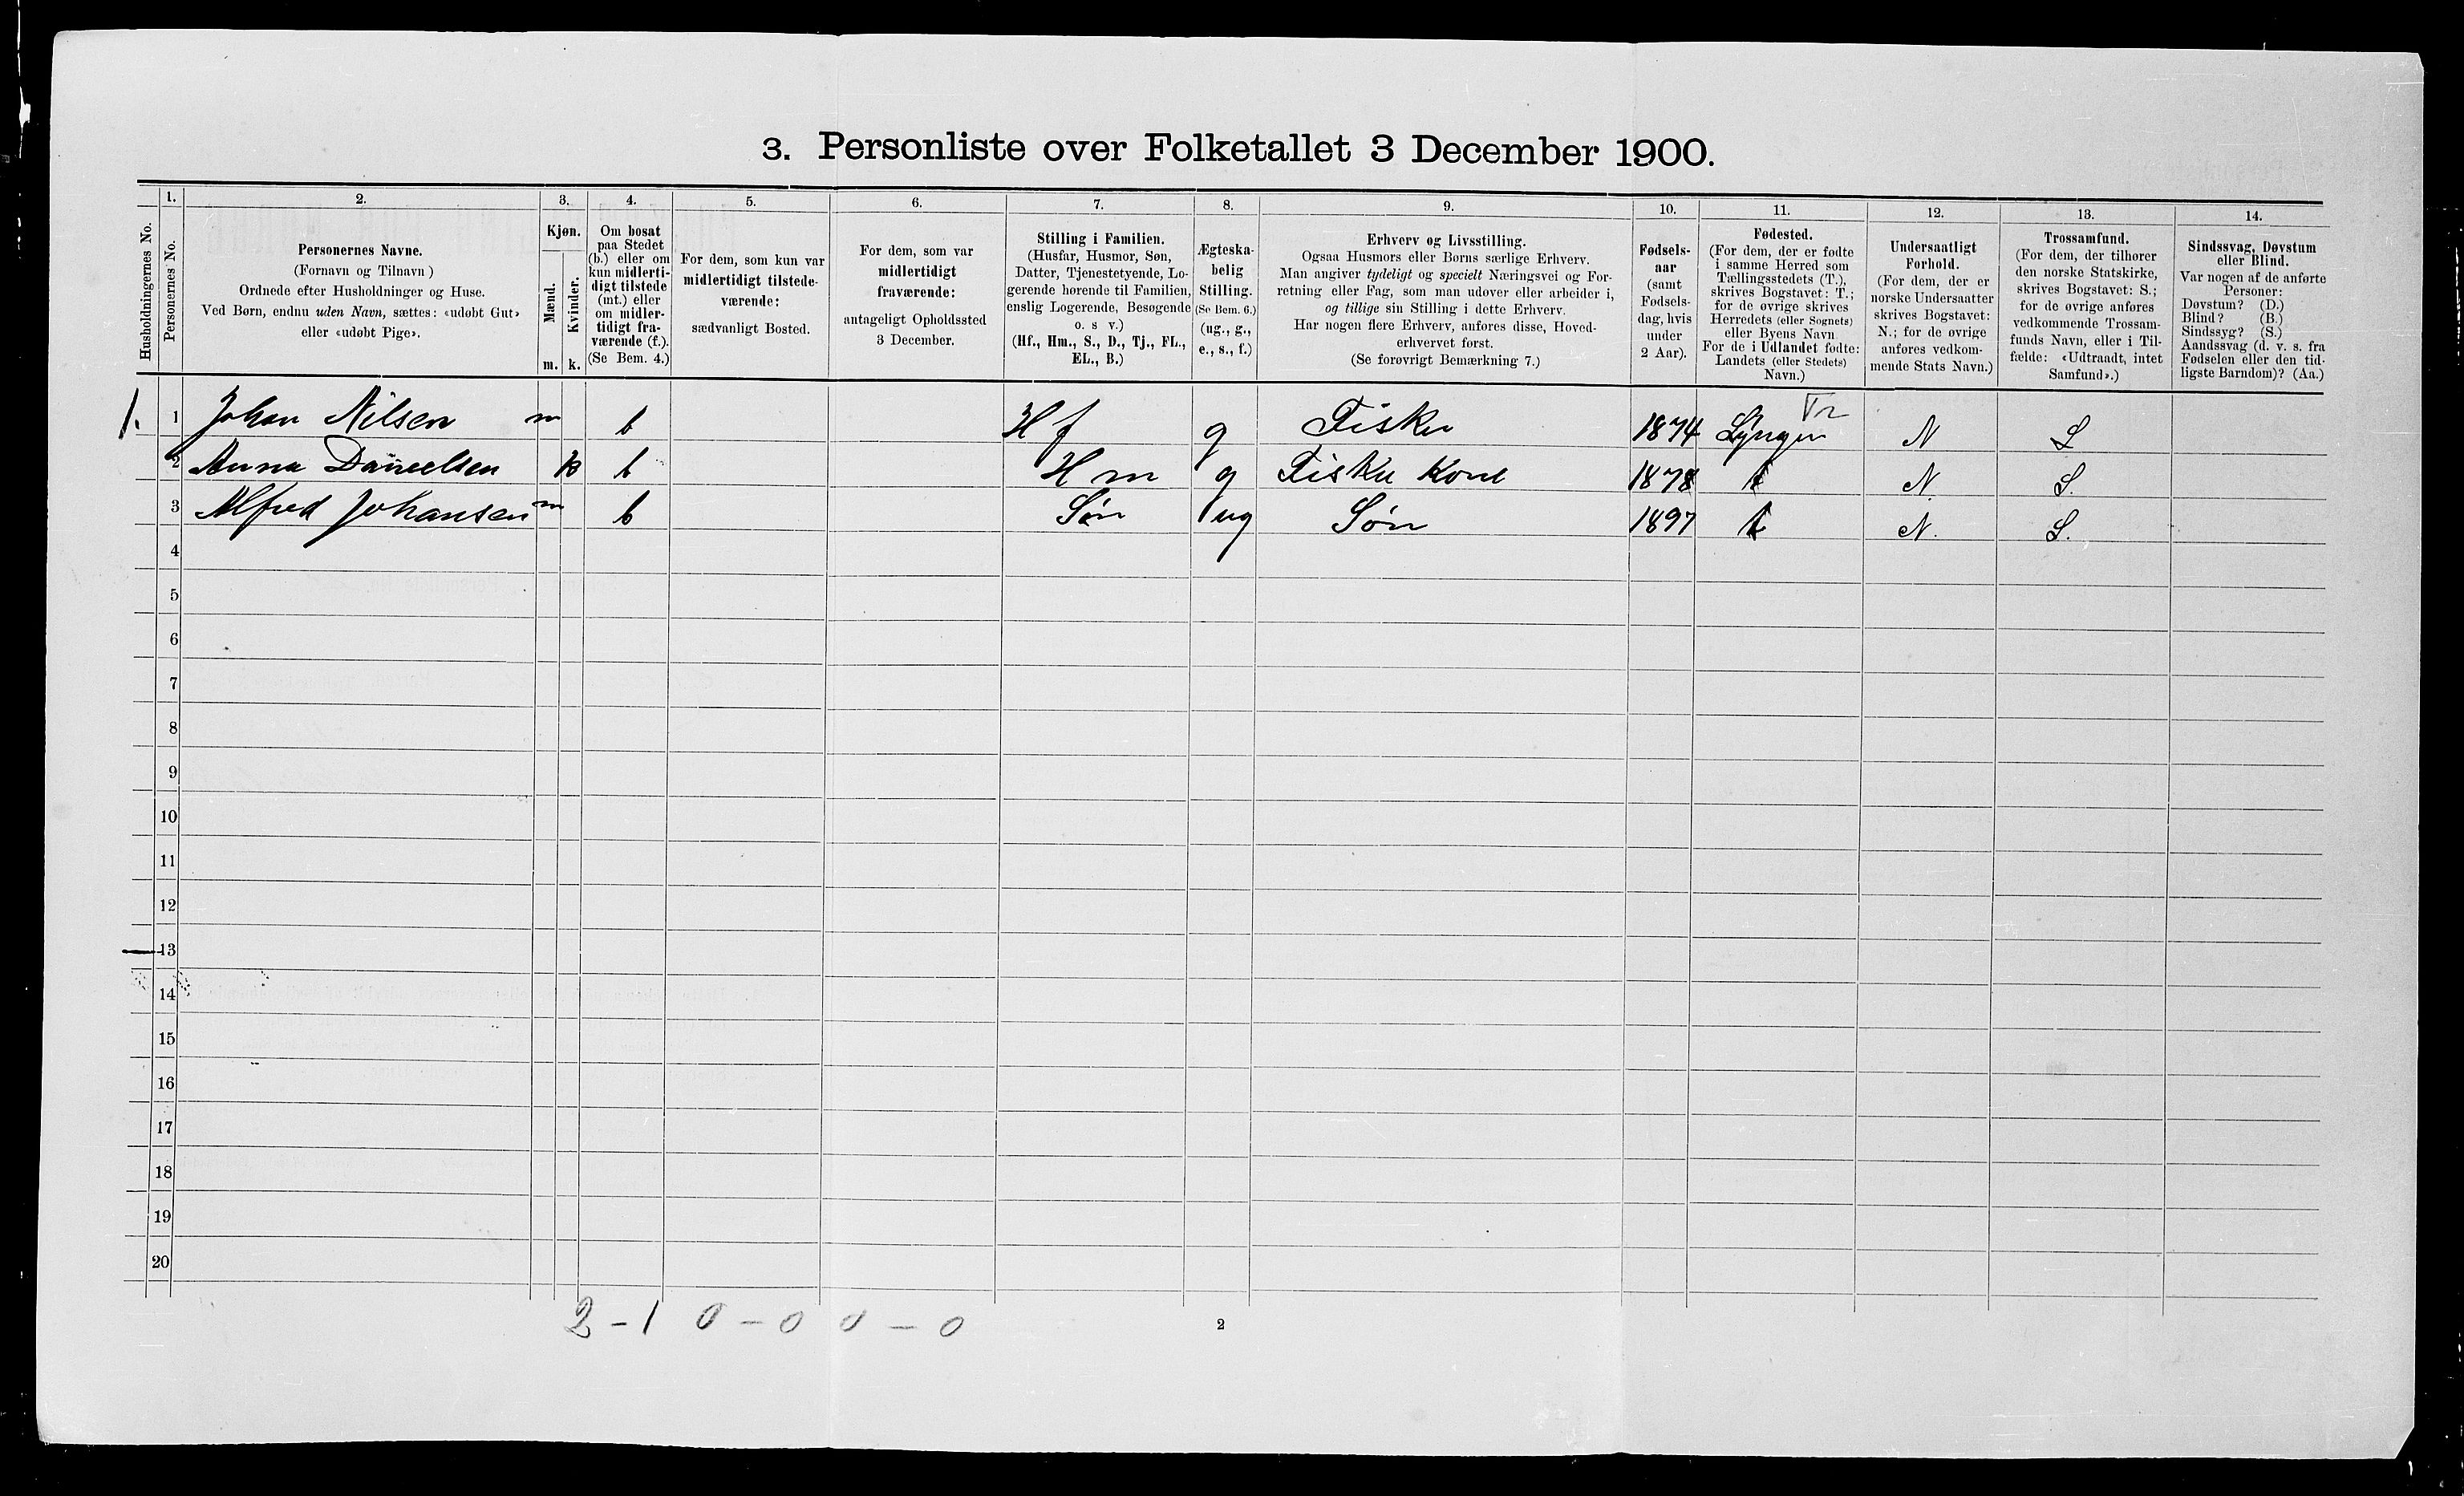 3. Personliste over Folketallet 3 December 1900.
1. 2. 3. 4. 5. 6. 7. 8. 9. 10. 11. 12. 13. 14.
Husholdningernes No.
Personernes No.
Personernes Navne.
(Fornavn og Tilnavn )
Ordnede efter Husholdninger og Huse.
Ved Børn, endnu uden Navn, sættes: «udøbt Gut»
eller «udøbt Pige».
Kjøn.
Mænd.
Kvinder.
m. k.
Om bosat
paa Stedet
(b.) eller om
kun midlerti-
digt tilstede
(mt.) eller
om midler-
tidigt fra-
værende (f.).
(Se Bem. 4.)
For dem, som kun var
midlertidigt tilstede-
værende:
sædvanligt Bosted.
For dem, som var
midlertidigt
fraværende:
antageligt Opholdssted
3 December.
Stilling i Familien.
(Husfar, Husmor, Søn,
Datter, Tjenestetyende, Lo-
gerende hørende til Familien,
enslig Logerende, Besøgende
o. s v.)
(Hf., Hm., S., D., Tj., FL.,
EL., B.)
Ægteska-
belig
Stilling.
(Se Bem. 6.)
(ug., g.,
e., s., f.)
Erhverv og Livsstilling.
Ogsaa Husmors eller Børns særlige Erhverv.
Man angiver tydeligt og specielt Næringsvei og For-
retning eller Fag, som man udøver eller arbeider i,
og tillige sin Stilling i dette Erhverv.
Har nogen flere Erhverv, anføres disse, Hoved-
erhvervet først.
(Se forøvrigt Bemærkning 7.)
Fødsels-
aar
(samt
Fødsels-
dag, hvis
under
2 Aar).
Fødested.
(For dem, der er fødte
i samme Herred som
Tællingsstedets (T.),
skrives Bogstavet: T.;
for de øvrige skrives
Herredets (eller Sognets)
eller Byens Navn.
For de i Udlandet fødte:
Landets (eller Stedets)
Navn.)
Undersaatligt
Forhold.
(For dem, der er
norske Undersaatter
skrives Bogstavet:
N.; for de øvrige
anføres vedkom-
mende Stats Navn.)
Trossamfund.
(For dem, der tilhører
den norske Statskirke,
skrives Bogstavet: S.;
for de øvrige anføres
vedkommende Trossam-
funds Navn, eller i Til-
fælde: «Udtraadt, intet
Samfund».)
Sindssvag, Døvstum
eller Blind.
Var nogen af de anførte
Personer:
Døvstum? (D.)
Blind? (B.)
Sindssyg? (S.)
Aandssvag (d. v. s. fra
Fødselen eller den tid-
ligste Barndom)? (Aa.)
1. 1 Johan Nilsen m b Hf g Fisker 1874 Lyngen Tr N S
2 Anna Danielsen k b Hm g Fisker Kone 1878 t N. S.
3 Alfred Johansen m b Søn ug Søn 1897 t N. S.
4
5
6
7
8
9
10
11
12
13
14
15
16
17
18
19
20
2 - 1 0 - 0 0 - 0
2